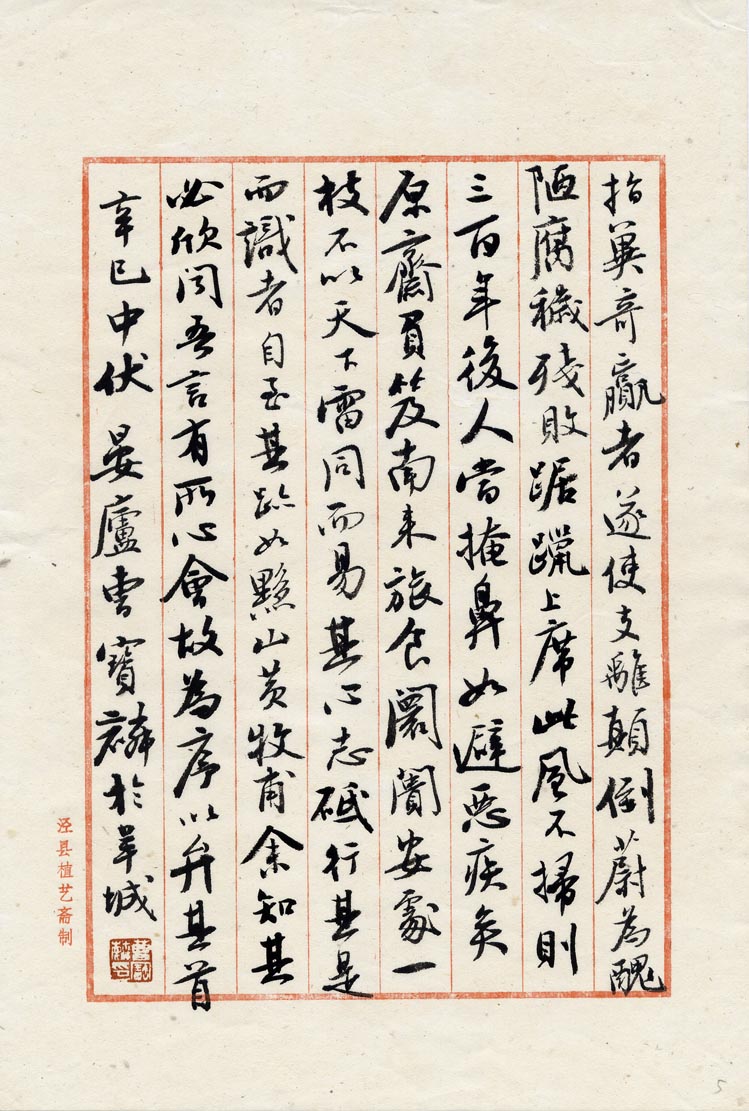 指異奇贏者遂使支離顛倒蔚為醜
陋腐穢殘敗踞躐上席此風不掃則
三百年後人當掩鼻如避惡疾矣
原齋負笈南來旅食闤闠安處一
枝不以天下雷同而易其心志砥行其是
而識者自至其跡如黟山黃牧甫余知其
必欣聞吾言有所心會故為序以弁其首
辛巳中伏 晏廬曹寶麟於羊城
泾县植艺斋制
5